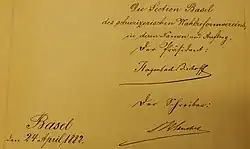 Die Section Basel
des schweizerischen Wahlreformvereins,
in deren Namen und Auftrag,
Der Präsident:
Hagenbach-Bischoff
Der Schreiber:
Basel
den 24 April, 1882.